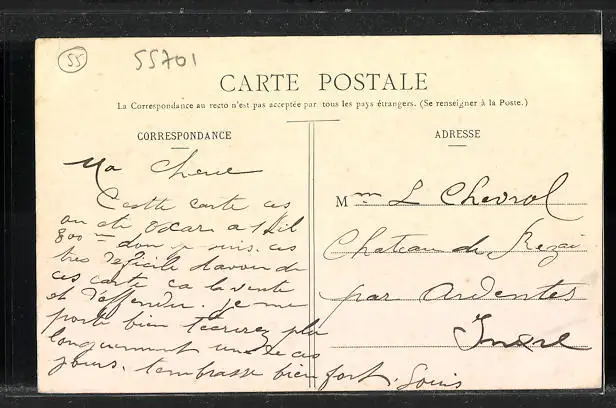 55
55701
CARTE POSTALE
La Correspondance au recto n'est pas acceptée par tous les pays étrangers. (Se renseigner à la Poste.)
CORRESPONDANCE
Ma Cherie
Cette carte ces
au été a 1 kil
800 m don je suis. ces
tres deficile davoir de
ces carte ca la vente
et deffendu. je me
porte bien tecrirez plu
longuement un de ces
jours. tembrasse bien fort. Louis
ADRESSE
Mme L Chevrol
Chateau de Rezai
par Ardentes
Indre